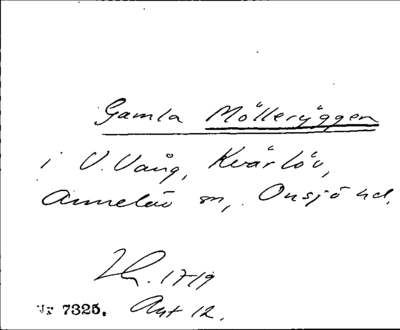 Gamla Mölleryggen
i V. Vång, Kvärlöv,
Annelöv sn, Onsjö hd.
LH. 1719
Nr 7325. Akt 12.